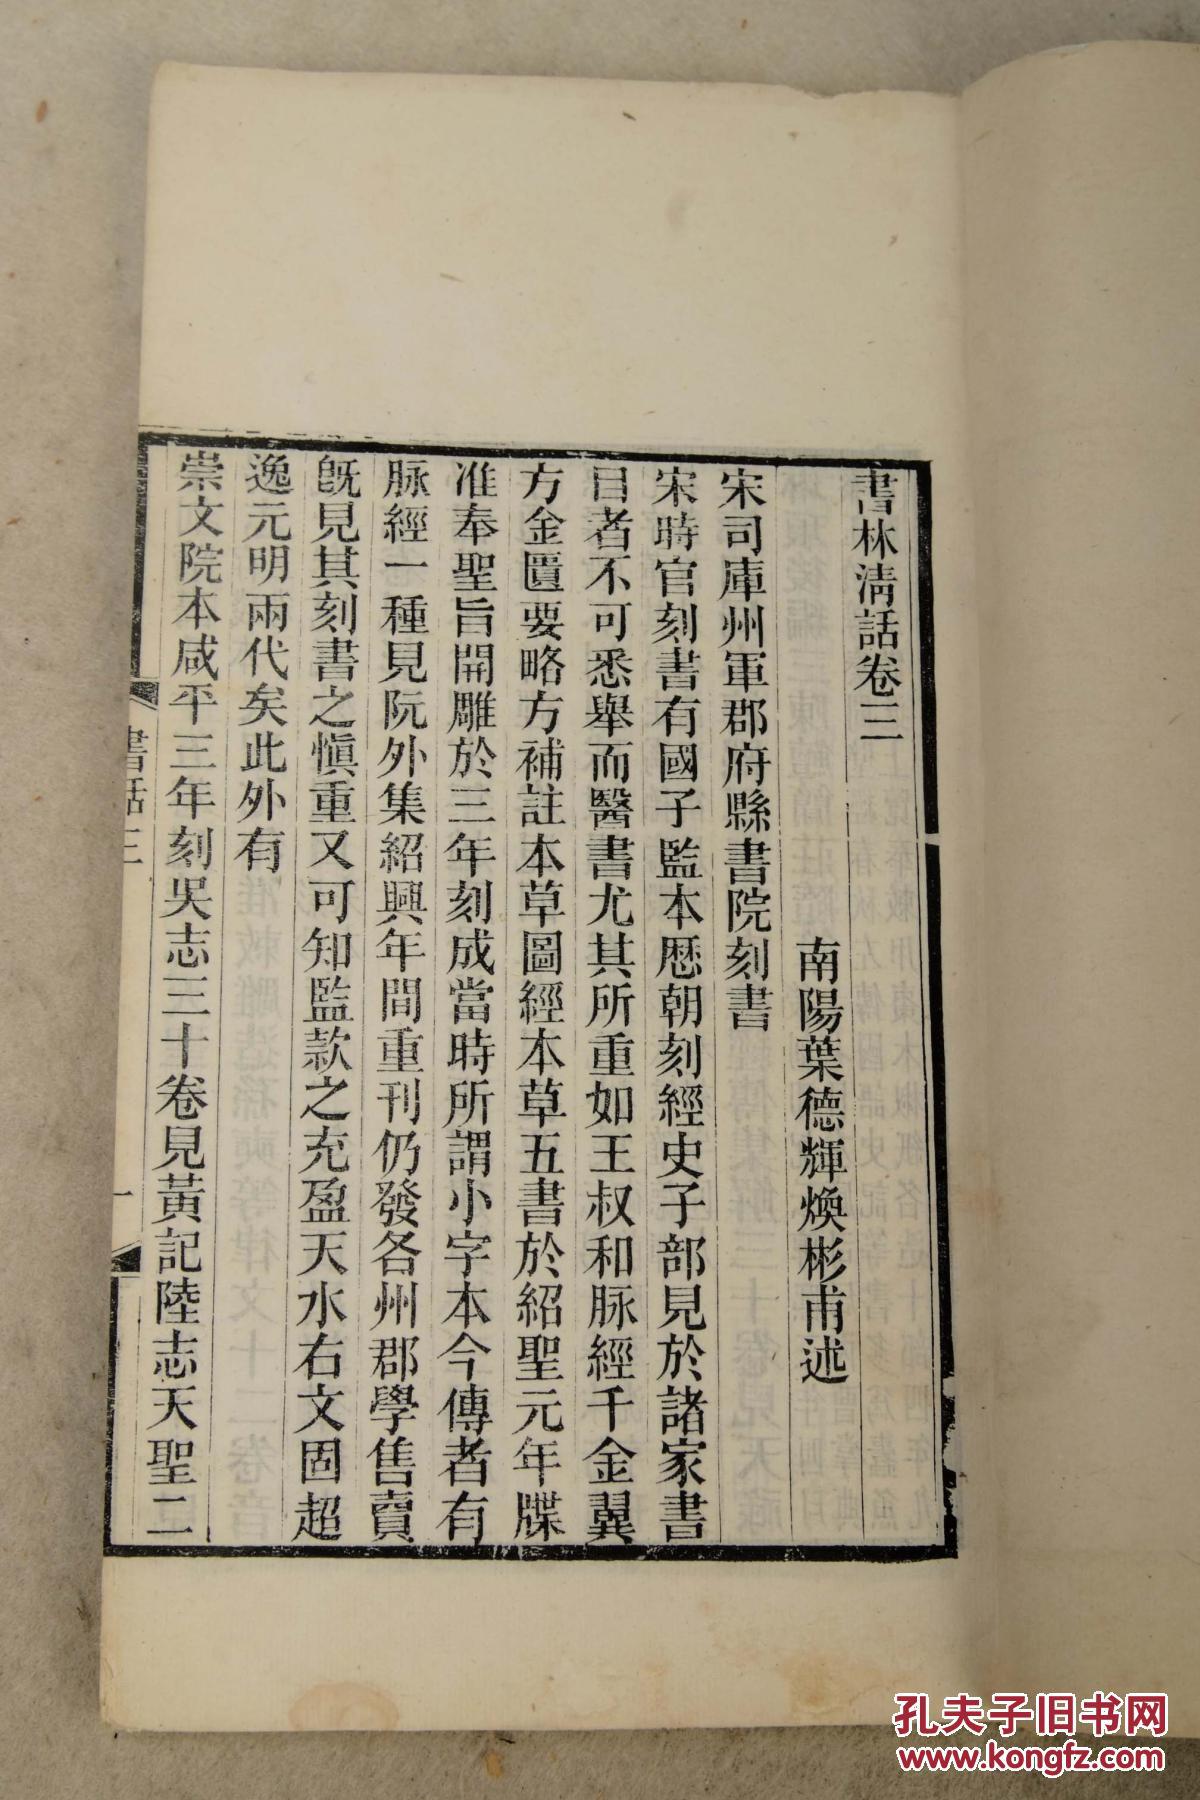 書林清話卷三
南陽葉德輝煥彬甫述
宋司庫州軍郡府縣書院刻書
宋時官刻書有國子監本歷朝刻經史子部見於諸家書
目者不可悉舉而醫書尤其所重如王叔和脉經千金翼
方金匱要略方補註本草圖經本草五書於紹聖元年牒
准奉聖旨開雕於三年刻成當時所謂小字本今傳者有
脉經一種見阮外集紹興年間重刊仍發各州郡學售賣
旣見其刻書之愼重又可知監款之充盈天水右文固超
逸元明兩代矣此外有
崇文院本咸平三年刻吳志三十卷見黃記陸志天聖二
書話三
一
孔夫子旧书网
www.kongfz.com